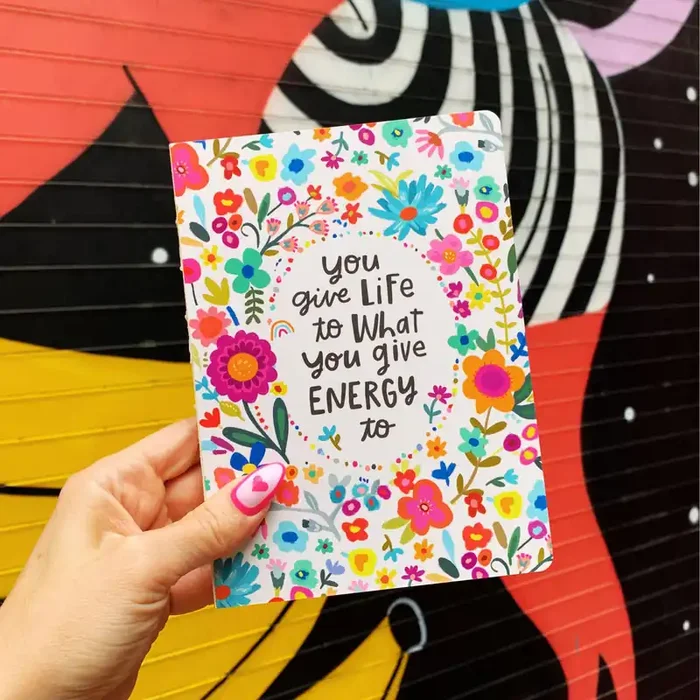 you
give LiFe
to What
you give
ENERGY
to